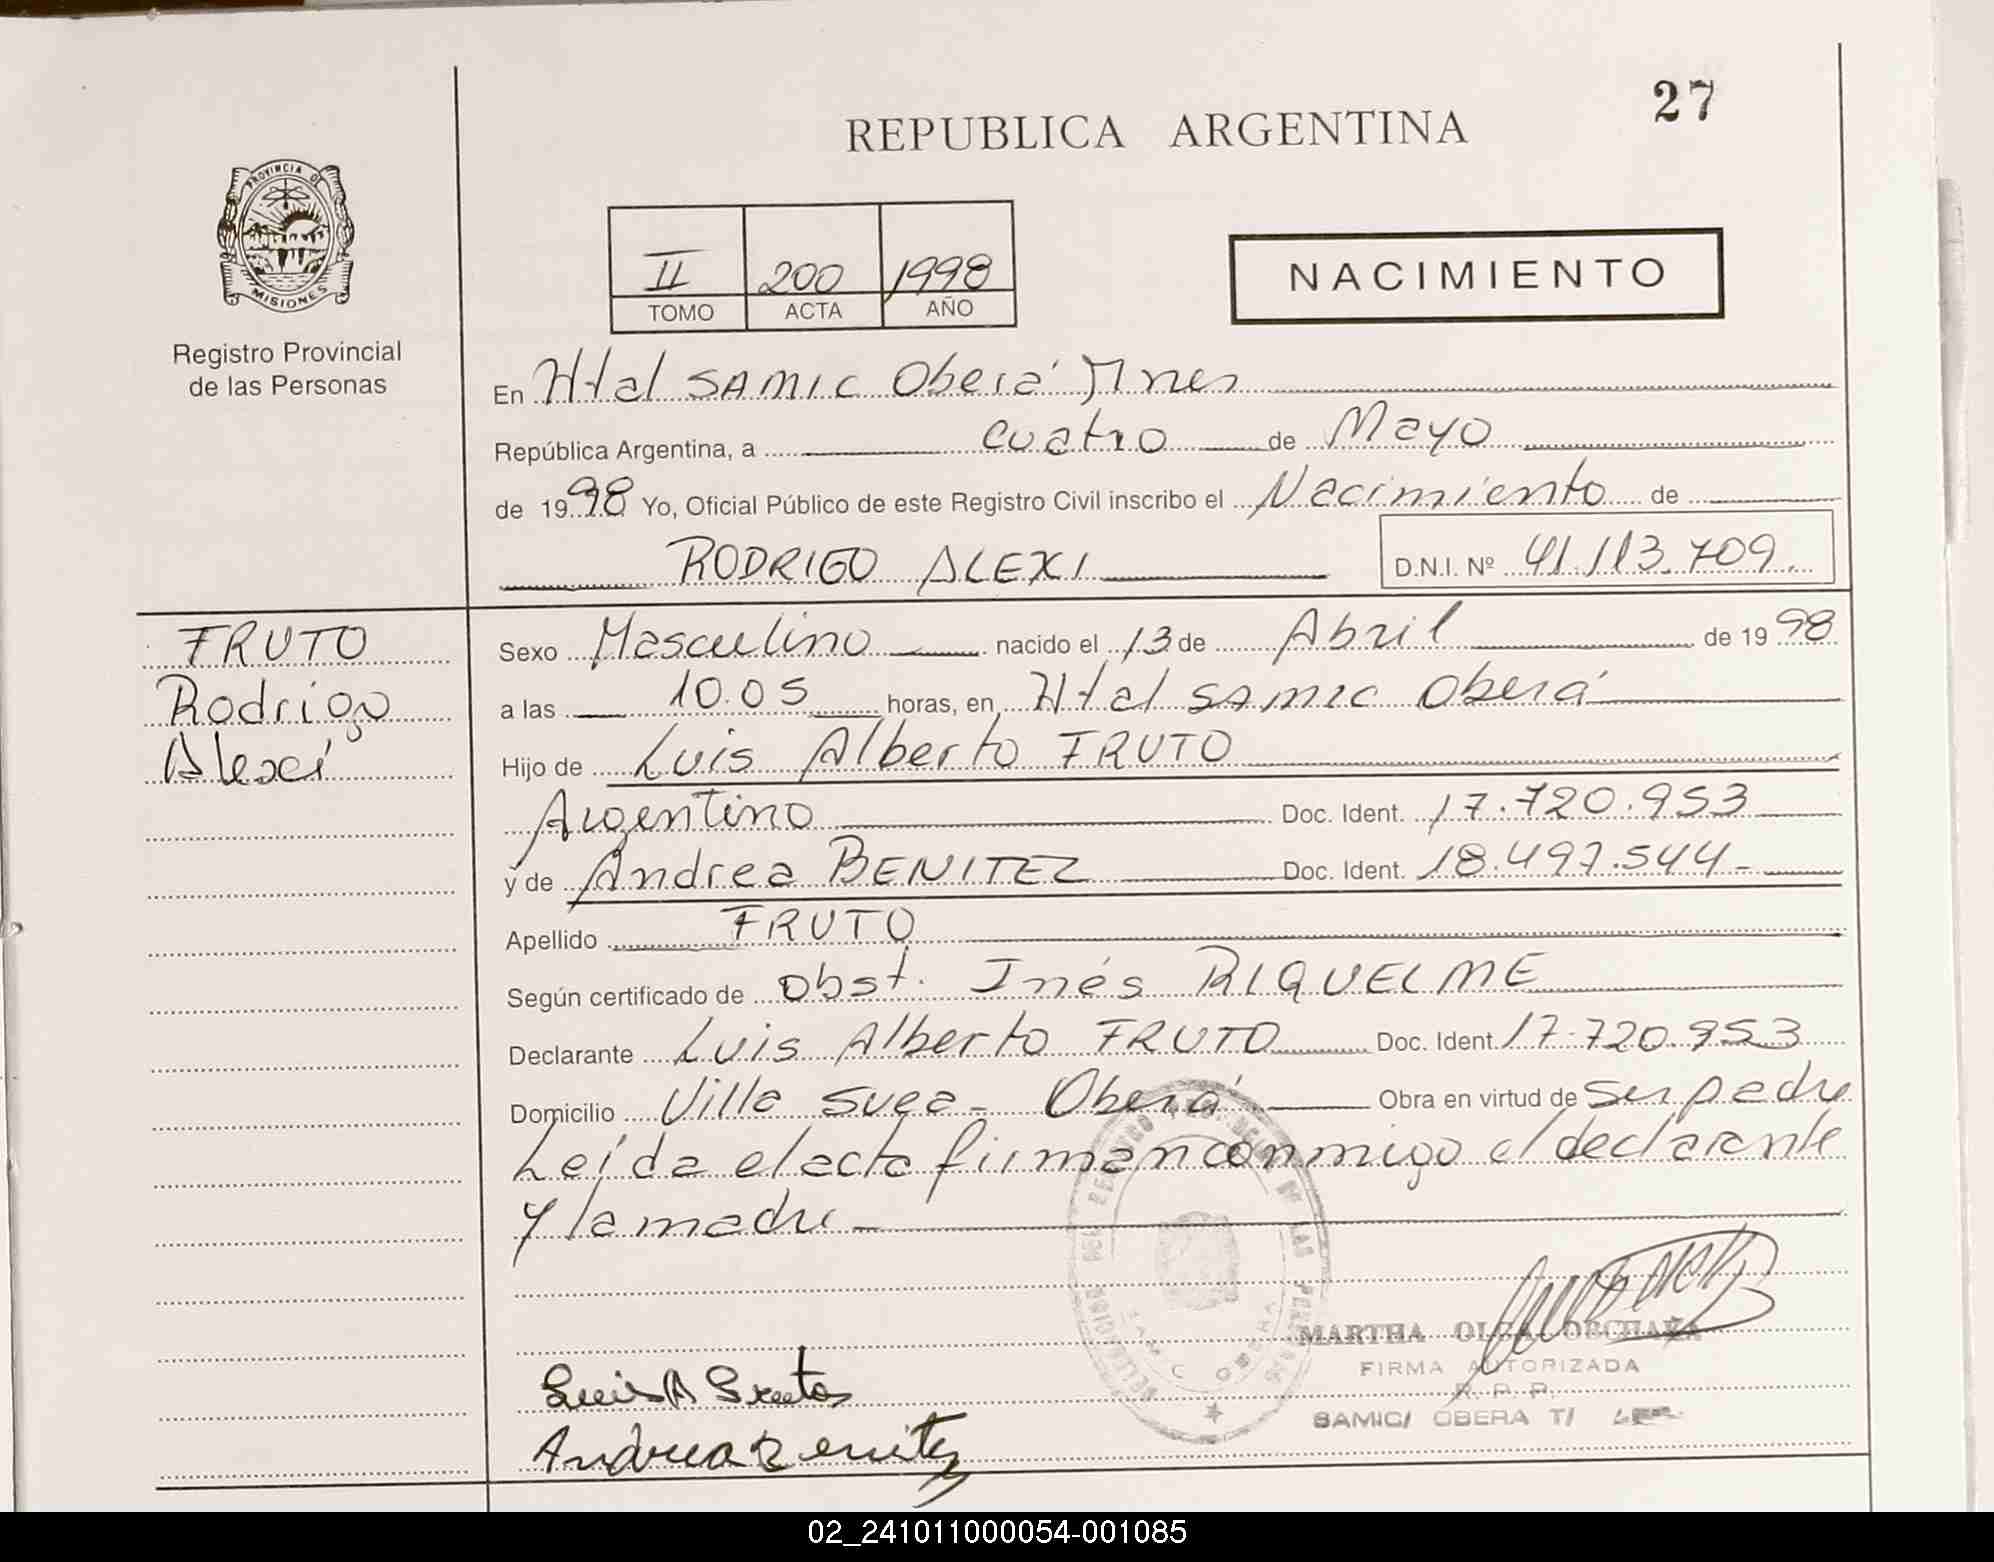 27
REPUBLICA ARGENTINA
PROVINCIA DE
MISIONES
Registro Provincial
de las Personas
II 200 1998
TOMO ACTA AÑO
NACIMIENTO
En Htal SAMIC Oberá Mnes
República Argentina, a cuatro de Mayo
de 1998 Yo, Oficial Público de este Registro Civil inscribo el Nacimiento de
RODRIGO ALEXI D.N.I. Nº 41.113.709.
FRUTO
Rodrigo
Alexi
Sexo Masculino nacido el 13 de Abril de 1998
a las 10.05 horas, en Htal SAMIC Oberá
Hijo de Luis Alberto FRUTO
Argentino Doc. Ident. 17.720.953
y de Andrea BENITEZ Doc. Ident. 18.497.544-
Apellido FRUTO
Según certificado de obst. Inés RIQUELME
Declarante Luis Alberto FRUTO Doc. Ident 17.720.953
Domicilio Villa Svea - Oberá Obra en virtud de ser padre
Leída el acta firman conmigo el declarante
y la madre -
MARTHA OLGA
FIRMA AUTORIZADA
R. P. P.
SAMIC/ OBERA T/
Luis A Frutos
Andrea Benitez
02_241011000054-001085